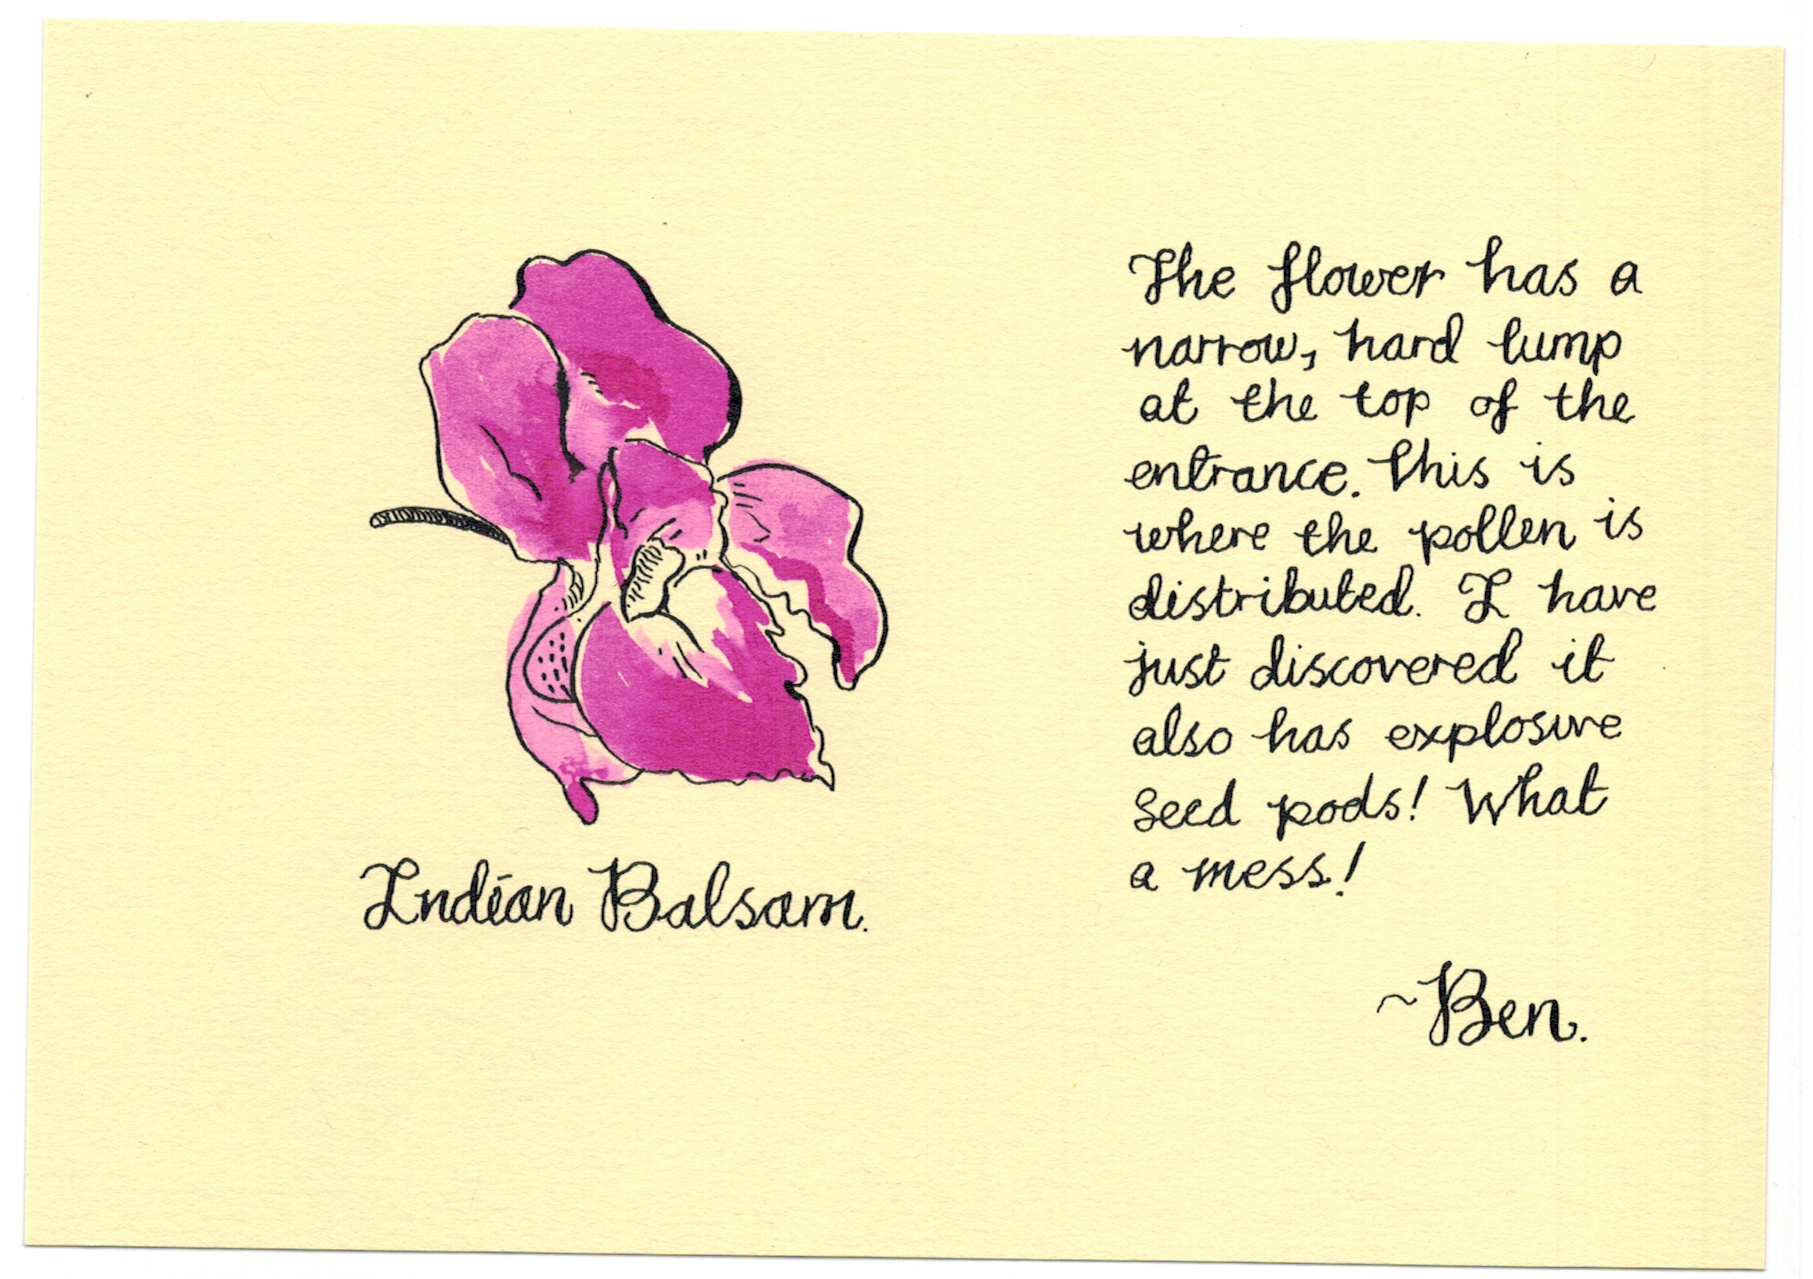 Indian Balsam.
The flower has a
narrow, hard lump
at the top of the
entrance. This is
where the pollen is
distributed. I have
just discovered it
also has explosive
seed pods! What
a mess!
~Ben.